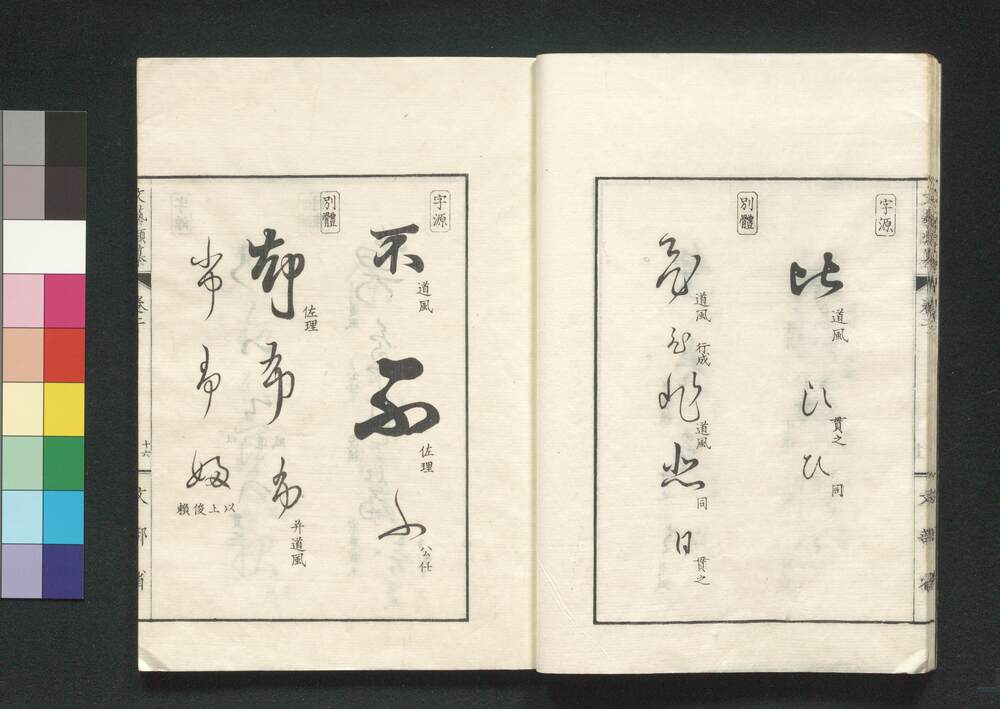 字源
比 道風
比 貫之
比 同
別體
飛 道風
飛 行成
非 道風
悲 同
日 貫之
字源
不 道風
不 佐理
不 公任
別體
布 佐理
布
布 并道風
婦 以上俊頼
文藝類纂
卷二
十六
文部省